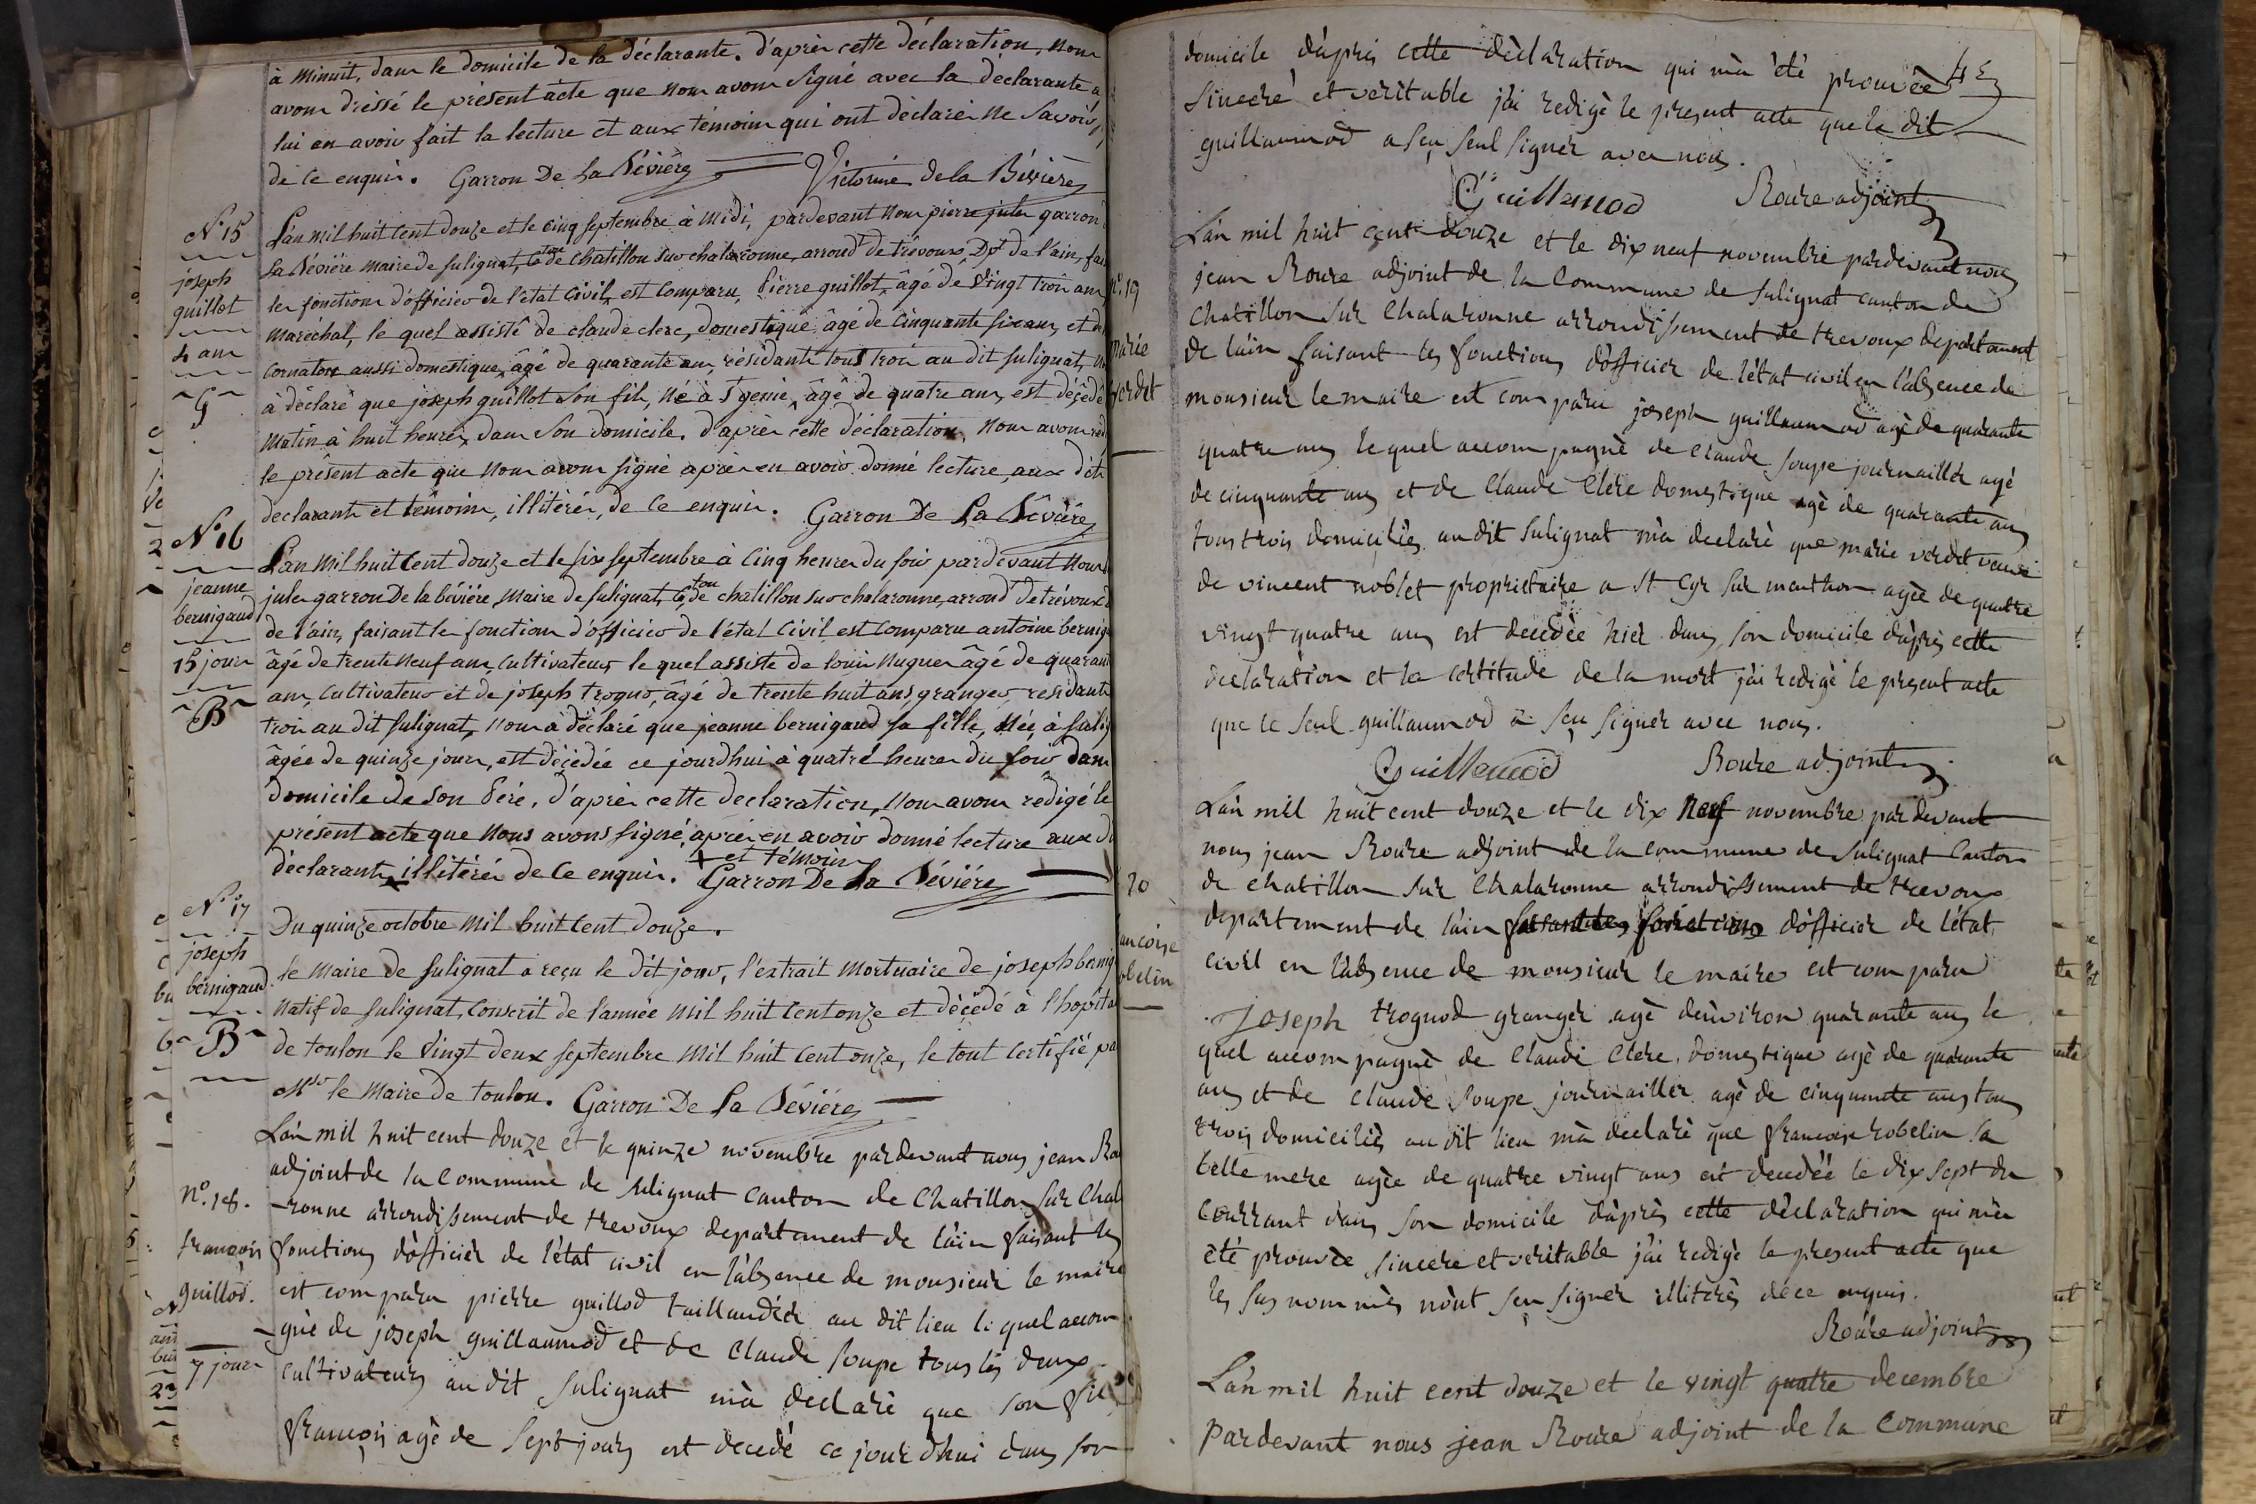 à minuit, dans le domicile de la déclarante. d'après cette déclaration, nous
avons dressé le présent acte que nous avons signé avec la déclarante a
lui en avoir fait la lecture et aux témoins qui ont déclarés ne savoir,
de ce enquis. Garron De La Bévière Victorine de la Bévière
N° 15
joseph
guillot
4 ans
G
L'an mil huit cent douze et le cinq septembre à midi, pardevant nous pierre jules garron
La Bévière maire de sulignat, cton de Chatillon sur chalaronne, arroudt de trévoux, Dpt de l'ain, fais
les fonctions d'officier de l'état civil, est comparu, Pierre guillot, âgé de vingt trois ans
maréchal, le quel assisté de claude clerc, domestique, âgé de cinquante six ans, et de
cornaton aussi domestique, âgé de quarante ans, résidants tous trois au dit sulignat,
à déclaré que joseph guillot son fils, né à St genie, âgé de quatre ans, est décédé
matin à huit heures, dans son domicile. d'après cette déclaration, nous avons
le présent acte que nous avons signé après en avoir donné lecture, aux dits
déclarants et témoins, illitérés, de ce enquis. Garron De La Bévière
N° 16
jeanne
bernigaud
15 jours
B
L'an mil huit cent douze et le six septembre à cinq heures du soir pardevant nous
jules garron De la bévière, Maire de sulignat, cton de chatillon sur chalaronne, arroudt de trévoux
de l'ain, faisant les fonctions d'officier de l'état civil est comparu antoine bernig
âgé de trente neuf ans, cultivateur, le quel assisté de louis nugues âgé de quarant
ans, cultivateur et de joseph trognod, âgé de trente huit ans, granger, residants
trois au dit sulignat, nous à déclaré que jeanne bernigaud sa fille, née à sulig
âgée de quinze jours, est décédée ce jourdhui à quatre heures du soir dans
domicile de son Père, d'après cette déclaration, nous avons rédigé le
présent acte que nous avons signé, après en avoir donné lecture aux
+ et témoins
déclarants, illitérés de ce enquis. Garron De La Bévière
N° 17
joseph
bernigaud
B
Du quinze octobre mil huit cent douze.
le Maire de sulignat a reçu le dit jour, l'extrait mortuaire de joseph bernig
natif de sulignat, conscrit de l'année mil huit cent onze et décédé à l'hopita
de toulon le vingt deux septembre mil huit cent onze, le tout certifié pa
Mr le Maire de toulon. Garron De La Bévière
n°. 18.
françois
guillod.
7 jours
L'an mil huit cent douze et le quinze novembre pardevant nous jean Rou
adjoint de la commune de sulignat canton de Chatillon sur Chal
-ronne arrondissement de trevoux departement de l'ain faisant les
fonctions d'officier de l'état civil en l'absence de monsieur le maire
est comparu pierre guillod taillandier au dit lieu le quel accom
-gné de joseph guillaumod et de claude soupe tous les deux
cultivateurs au dit sulignat m'a declaré que son fils
françois agé de sept jours est decedé ce jourdhui dans son
domicile d'après cette déclaration qui m'a été prouvée
sincere et veritable j'ai redigé le present acte que le dit
guillaumod a seu seul signer avec nous.
Guillemod Roure adjoint
n°. 19
marie
verdet
L'an mil huit cent douze et le dix neuf novembre pardevant nous
jean Roure adjoint de la Commune de sulignat canton de
chatillon sur Chalaronne arrondissement de trevoux departement
de l'ain faisant les fonctions d'officier de l'état civil en l'absence de
monsieur le maire est comparu joseph guillaumod agé de quarante
quatre ans lequel accompagné de Claude soupe journaillier agé
de cinquante ans et de Claude Clere domestique agé de quarante ans
tous trois domiciliés au dit sulignat m'a declaré que marie verdet veuve
de vincent noblet proprietaire a St Cyr sur menthon agée de quatre
vingt quatre ans est decedée hier dans son domicile d'après cette
declaration et la certitude de la mort j'ai redigé le present acte
que le seul guillaumod a seu signer avec nous.
Guillemod Roure adjoint
20
ancoise
obelin
L'an mil huit cent douze et le dix neuf novembre pardevant
nous jean Roure adjoint de la commune de sulignat Canton
de chatillon sur Chalaronne arrondissement de trevoux
departement de l'ain faisant les fonctions d'officier de l'état
civil en l'absence de monsieur le maire est comparu
Joseph trognod granger agé d'environ quarante ans le
quel accompagné de Claude Clere domestique agé de quarante
ans et de Claude soupe journaillier agé de cinquante ans tous
trois domiciliés au dit lieu m'a declaré que francoise robelin sa
belle mere agée de quatre vingt ans est decedée le dix sept du
Courrant dans son domicile d'après cette déclaration qui m'a
été prouvée sincere et veritable j'ai redigé le present acte que
les sus nommés n'ont seu signer illiterés de ce enquis.
Roure adjoint
L'an mil huit cent douze et le vingt quatre decembre
Pardevant nous jean Roure adjoint de la Commune